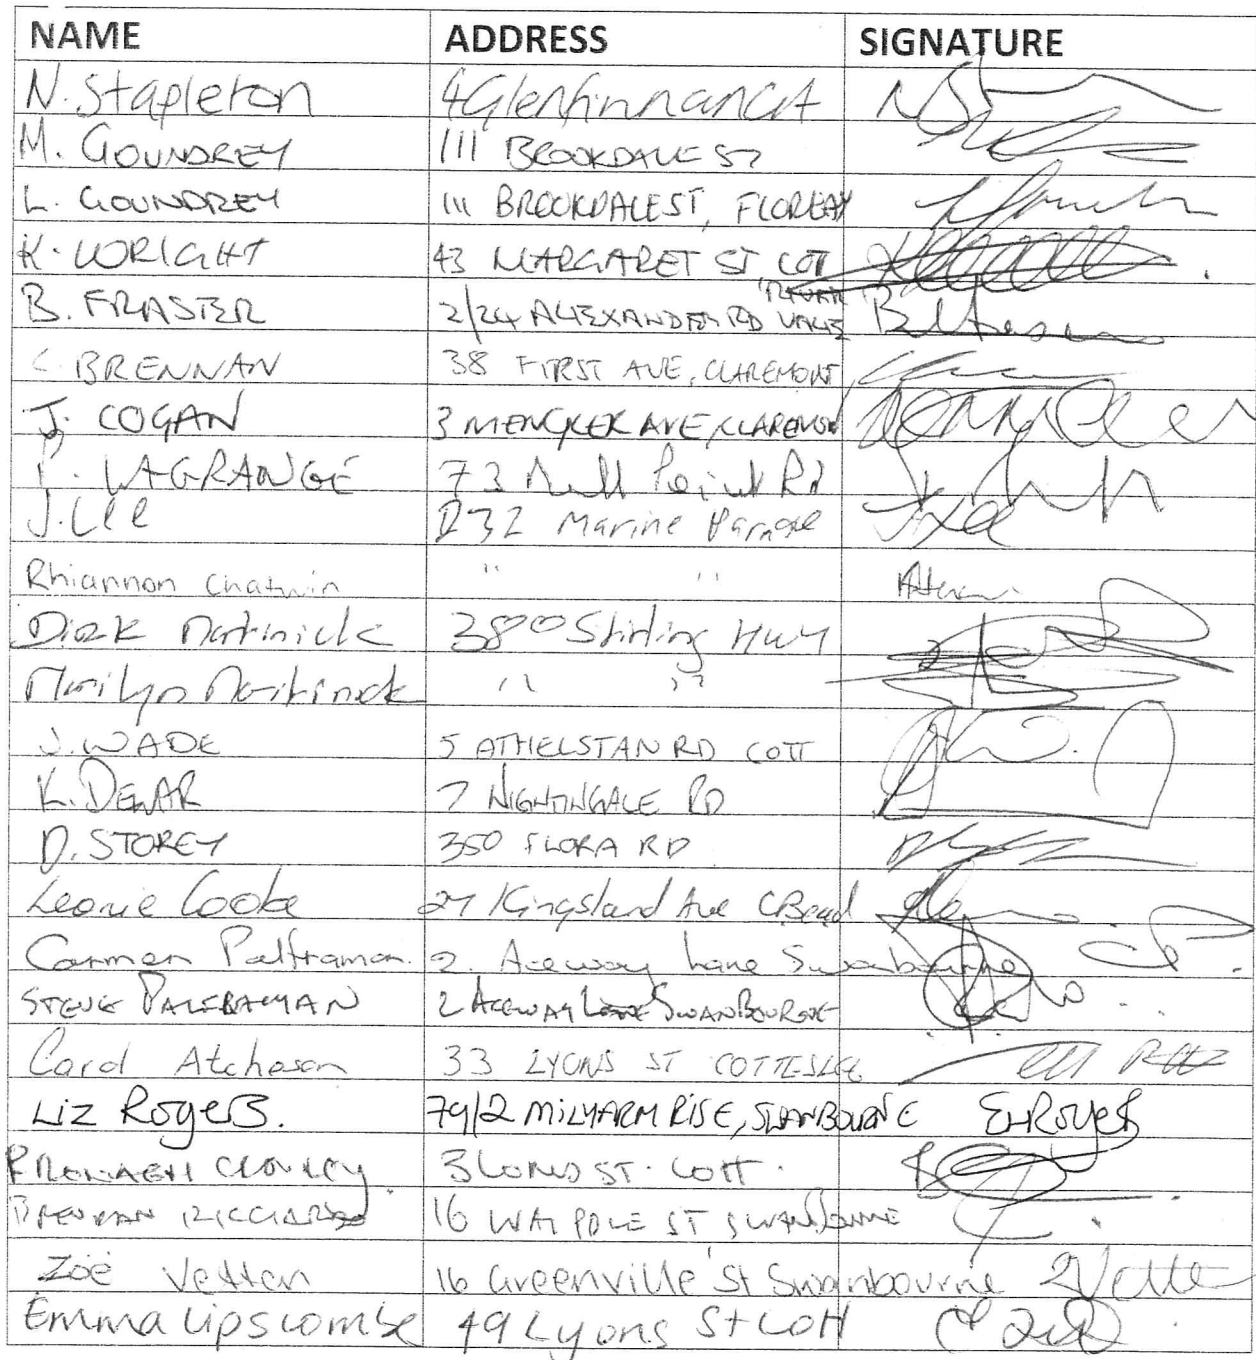 NAME ADDRESS SIGNATURE
N. Stapleton 4 Glenfinnan Crt
M. GOUNDREY 111 BROOKDALE ST
L. GOUNDREY 111 BROOKDALE ST, FLOREAT
K. WRIGHT 43 MARGARET ST, COTT
B. FRASER 2/24 ALEXANDER RD RIVERVALE
C. BRENNAN 38 FIRST AVE, CLAREMONT
J. COGAN 3 AVE, CLAREMON
P. LAGRANGE 73 Point Rd
J. Lee 232 Marine Parade
Rhiannon Chatwin " "
Dirk Martinick Stirling Hwy
Marilyn Martinick " "
J. WADE 5 ATHELSTAN RD COTT J.W.
K. DEWAR 7 NIGHTINGALE RD
D. STOREY 350 FLORA RD
Leonie Cooke 27 Kingsland Ave C Beach
Carmen Palframan. 2. Aceway Lane Swanbourne
STEVE PALFRAMAN 2 ACEWAY LANE SWANBOURNE
Carol Atcheson 33 LYONS ST COTTESLOE
Liz Rogers. 79/2 MILYARM RISE, SWANBOURNE E Rogers
3 ST. COTT.
BRENDAN 16 WALPOLE ST SWANBOURNE
Zoë Vetten 16 Greenville St Swanbourne Z Vette
Emma Lipscombe 49 Lyons St Cott